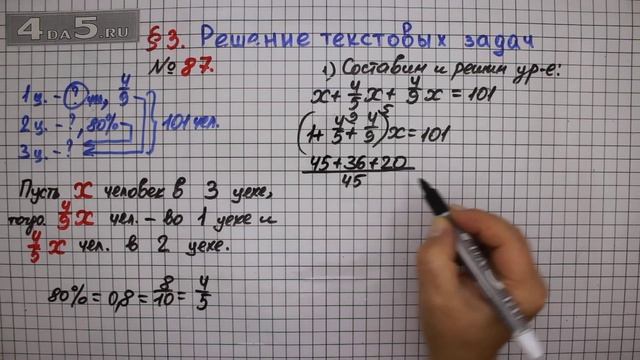 4DA5.RU
§3. Решение текстовых задач
№ 87.
1 ц. - ? чел, 4/9
2 ц. - ?, 80%
3 ц. - ?
101 чел.
Пусть x человек в 3 цехе,
тогда 4/9 x чел. - во 1 цехе и
4/5 x чел. в 2 цехе.
80% = 0,8 = 8/10 = 4/5
1) Составим и решим ур-е:
x + 4/5 x + 4/9 x = 101
(1 + 4/5 + 4/9) x = 101
45 + 36 + 20
45